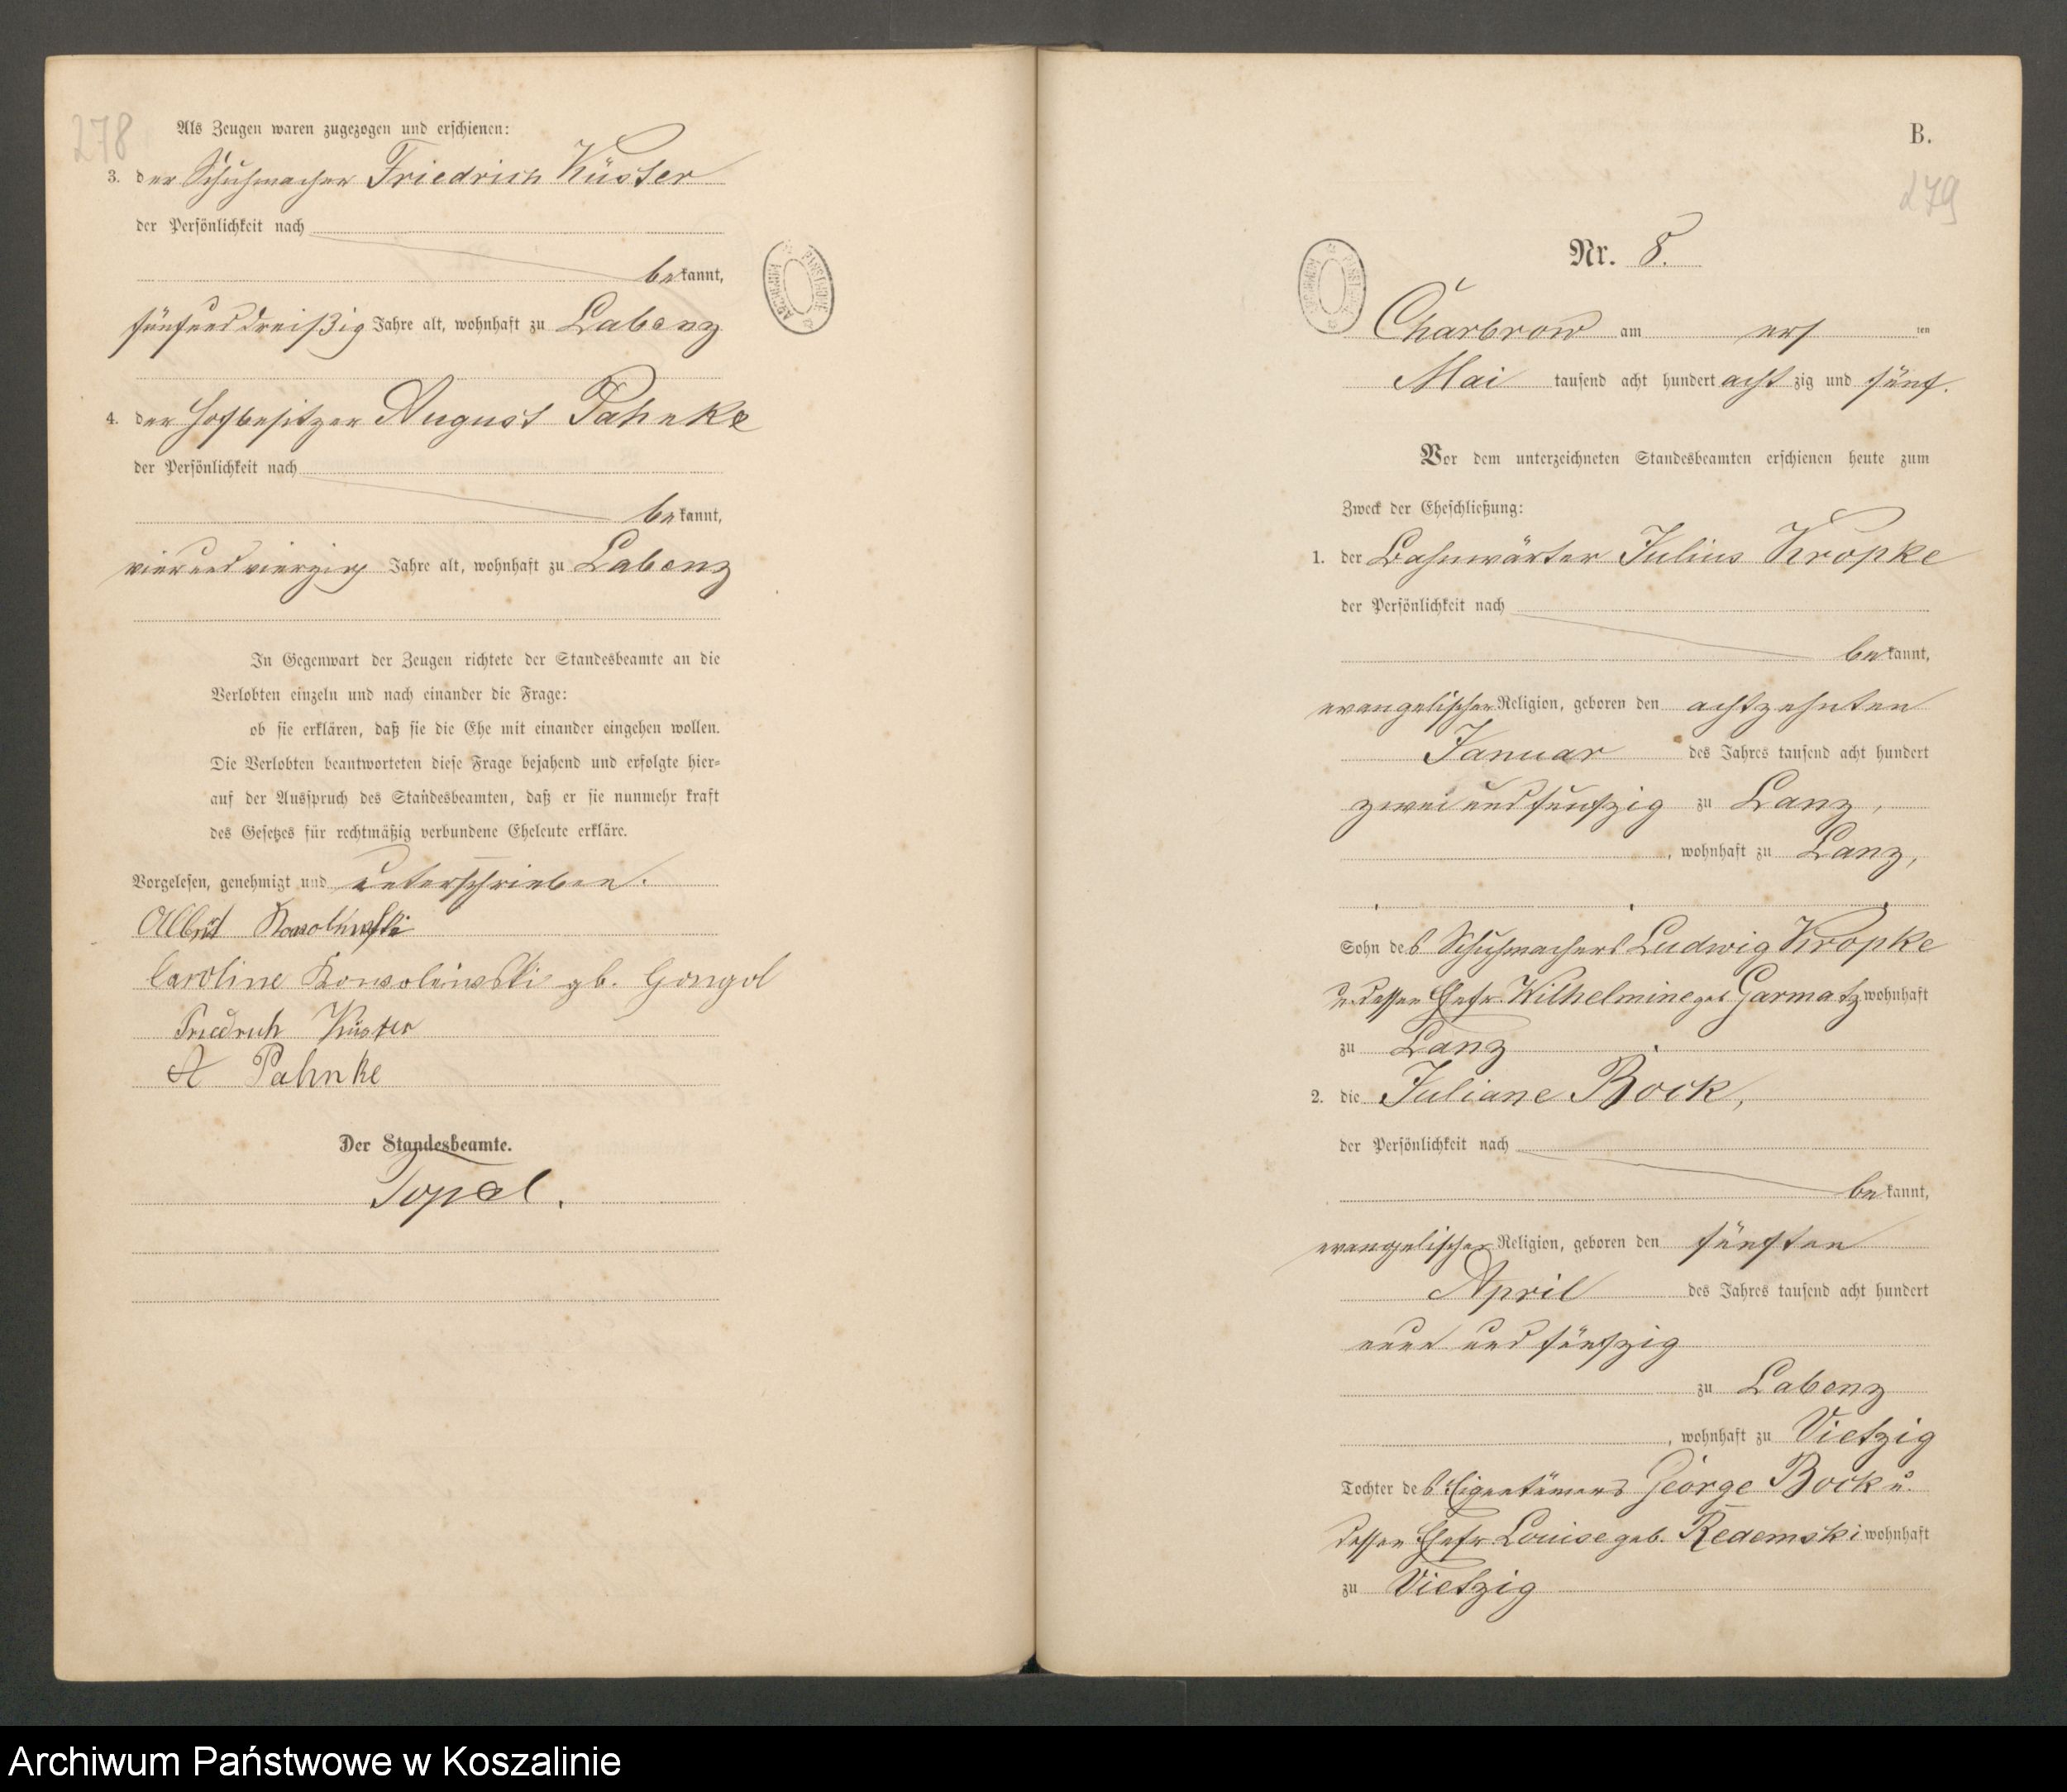 278
Als Zeugen waren zugezogen und erschienen:
3. der Schuhmacher Friedrich Küster
der Persönlichkeit nach
bekannt,
fünfunddreißig Jahre alt, wohnhaft zu Labenz
4. der Hofbesitzer August Pahnke
der Persönlichkeit nach
bekannt,
vierundvierzig Jahre alt, wohnhaft zu Labenz
In Gegenwart der Zeugen richtete der Standesbeamte an die
Verlobten einzeln und nach einander die Frage:
ob sie erklären, daß sie die Ehe mit einander eingehen wollen.
Die Verlobten beantworteten diese Frage bejahend und erfolgte hier-
auf der Ausspruch des Standesbeamten, daß er sie nunmehr kraft
des Gesetzes für rechtmäßig verbundene Eheleute erkläre.
Vorgelesen, genehmigt und unterschrieben.
Albert
Caroline gb. Gongol
Friedrich Küster
A Pahnke
Der Standesbeamte.
Topel.
B.
279
Nr. 8.
Charbrow am ersten
Mai tausend acht hundert achtzig und fünf.
Vor dem unterzeichneten Standesbeamten erschienen heute zum
Zweck der Eheschließung:
1. der Bahnwärter Julius Kropke
der Persönlichkeit nach
bekannt,
evangelischer Religion, geboren den achtzehnten
Januar des Jahres tausend acht hundert
zwei und fünfzig zu Lanz,
, wohnhaft zu Lanz,
Sohn des Schuhmachers Ludwig Kropke
u. dessen Ehefr. Wilhelmine geb Garmatz wohnhaft
zu Lanz
2. die Juliane Bock,
der Persönlichkeit nach
bekannt,
evangelischer Religion, geboren den fünften
April des Jahres tausend acht hundert
neun und fünfzig
zu Labenz
, wohnhaft zu Vietzig
Tochter des Eigentümers George Bock u.
dessen Ehefr Louise geb. Redemski wohnhaft
zu Vietzig
Archiwum Państwowe w Koszalinie